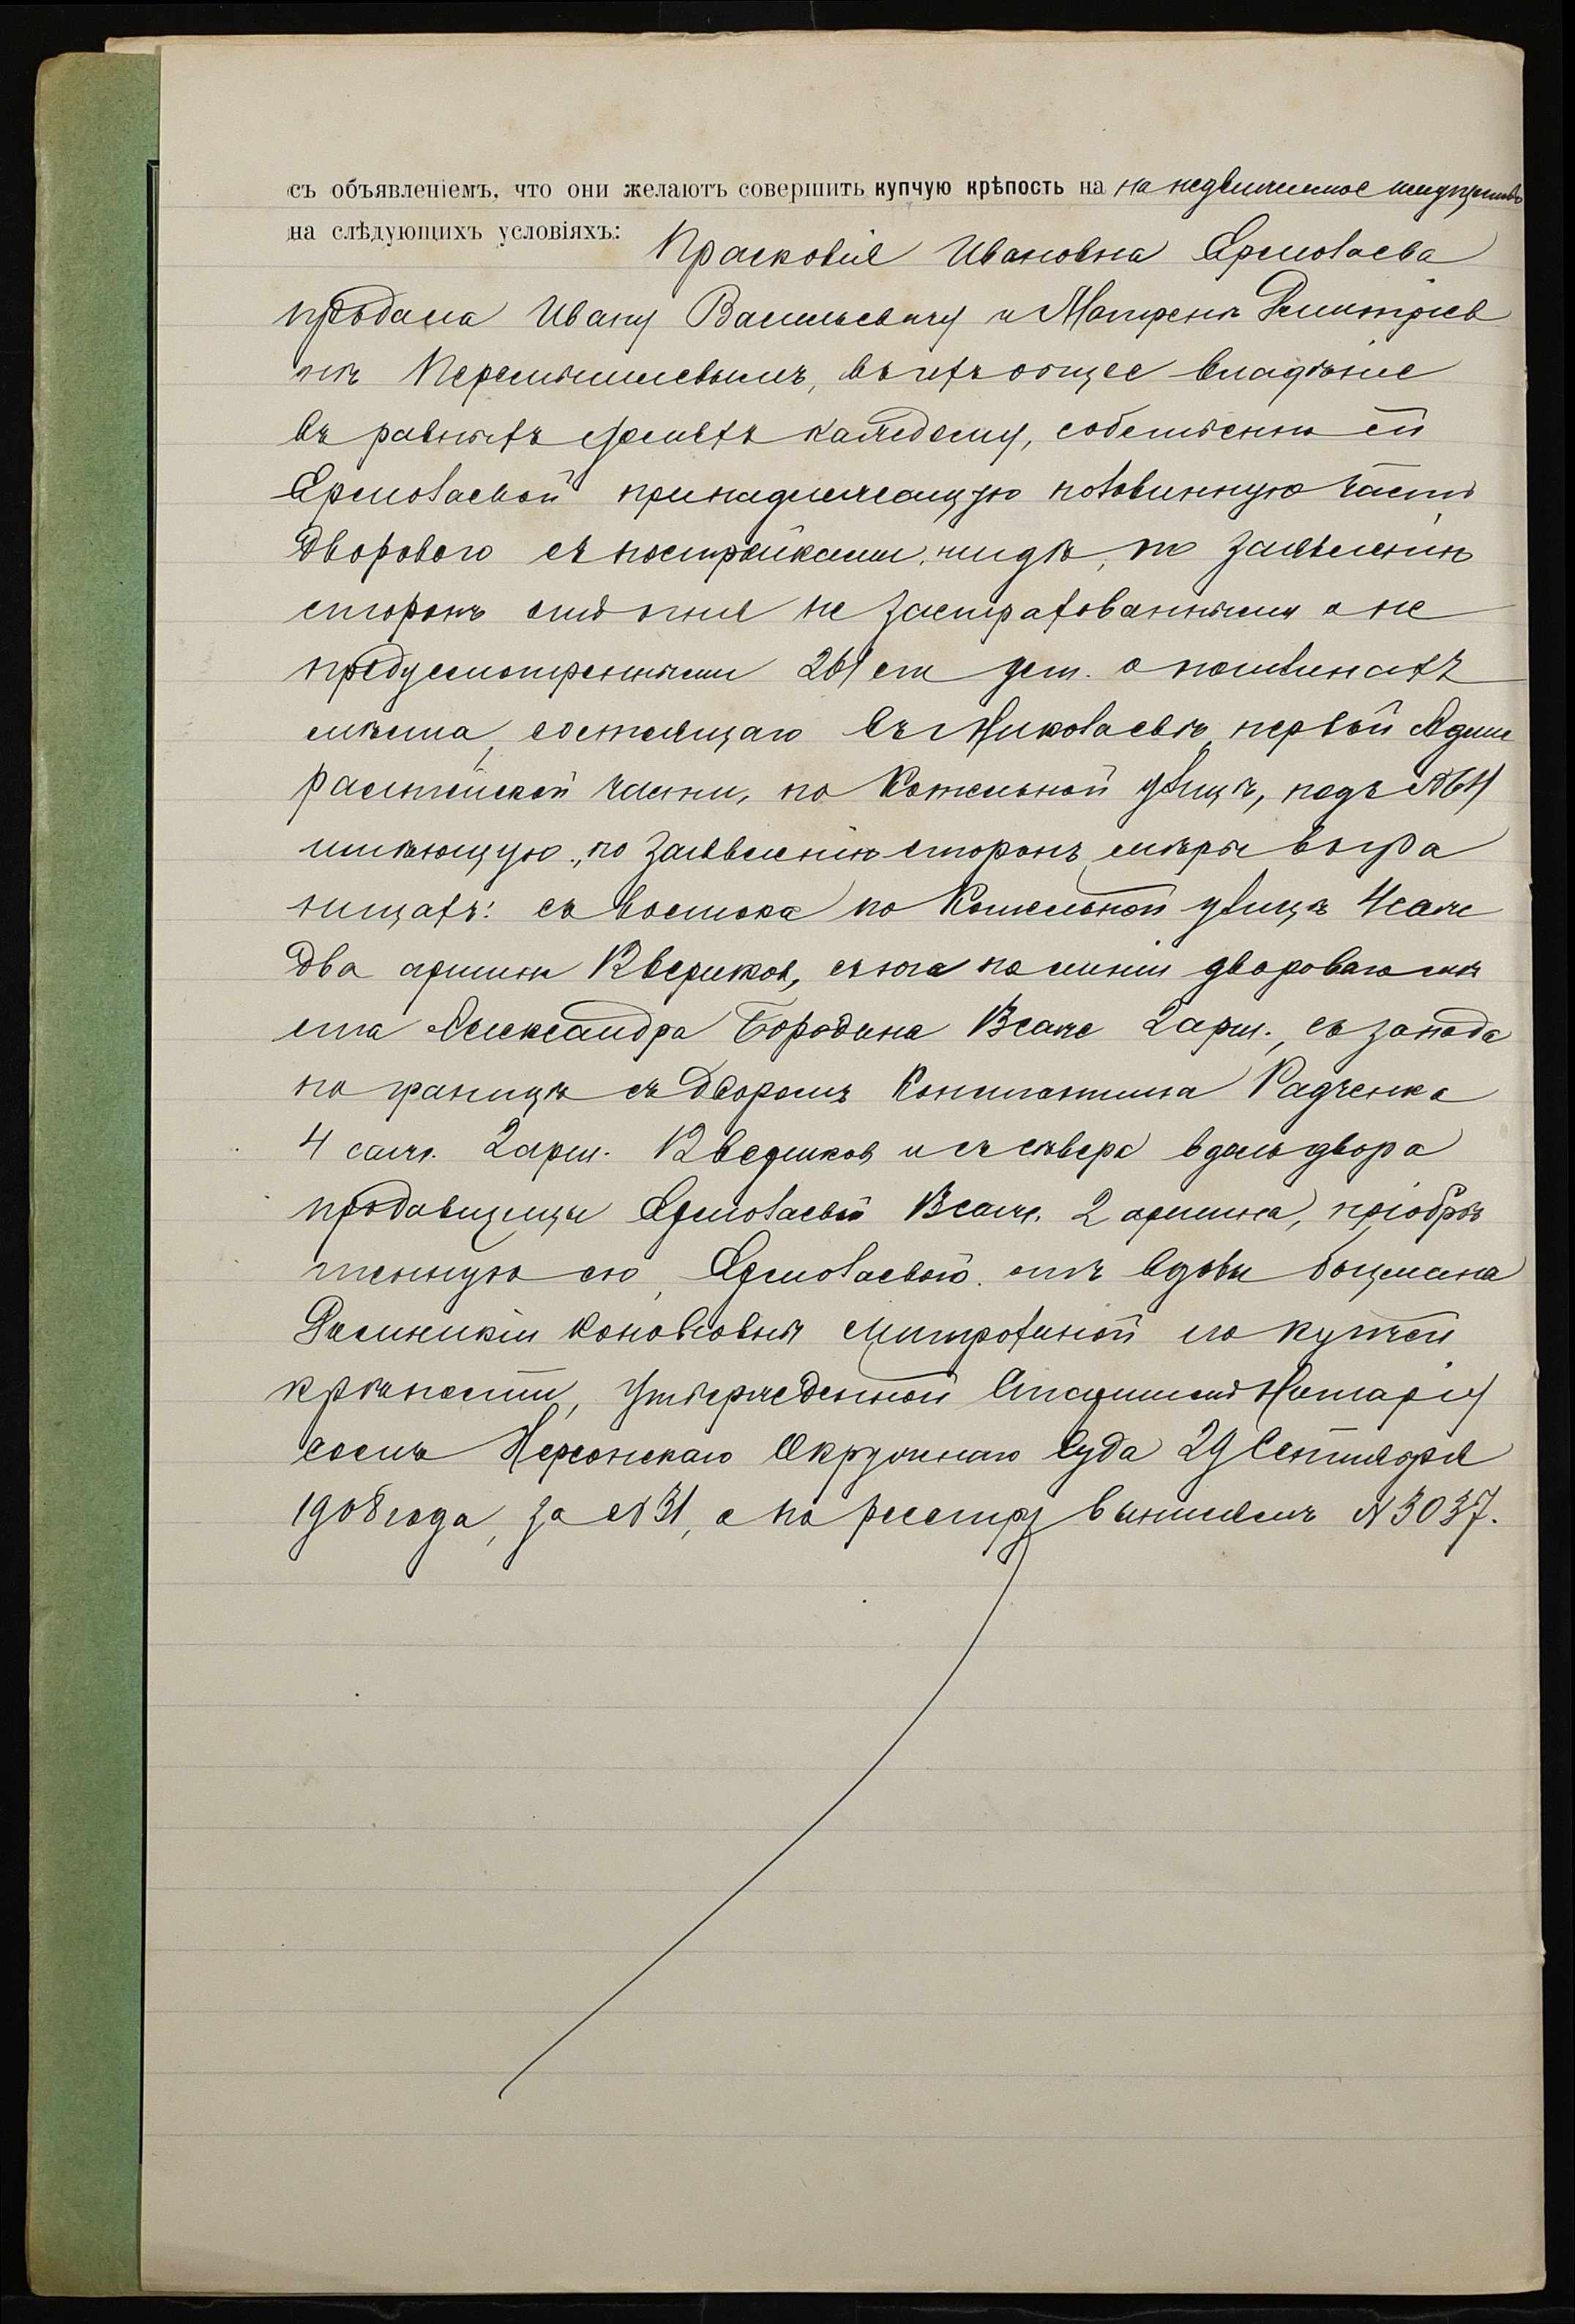 съ объявленіемъ, что они желаютъ совершить купчую крѣпость на на недвижимое имущество
на слѣдующихъ условіяхъ:
Прасковія Ивановна Ермолаева
продала Ивану Васильевичу и Матренѣ Дмитріев
нѣ Перемышлевымъ, въ ихъ общее владѣніе
въ равныхъ доляхъ каждому, собственно ей
Ермолаевой принадлежащую половинную часть
дворового съ постройками, нигдѣ, по заявленію
сторонъ отъ огня не застрахованными а не
предусмотренными 261 ст уст. о пошлинахъ
мѣста, состоящаго въ г Николаевѣ, первой Адми
ралтейской части, по Котельной улицѣ, подъ № 64
имѣющую, по заявленію сторонъ, мѣры въ гра
ницахъ: съ востока по Котельной улицѣ 4 саж
два аршин 12 вершков, съ юга по линіи двороваго мѣ
ста Александра Бородина 13 саж 2 арш., съ запада
по границѣ съ дворомъ Константина Радченка
4 саж. 2 арш. 12 вершков и съ сѣвера вдоль двора
продавщицы Ермолаевой 13 саж. 2 аршина, пріобрѣ
тенную ею, Ермолаевой, отъ вдовы боцмана
Кононовны Митрофиной по купчей
крѣпости, утвержденной Старшимъ Нотаріу
сомъ Херсонскаго Окружнаго Суда 29 Сентября
1908 года, за № 31, а по реестру выписямъ № 3037.